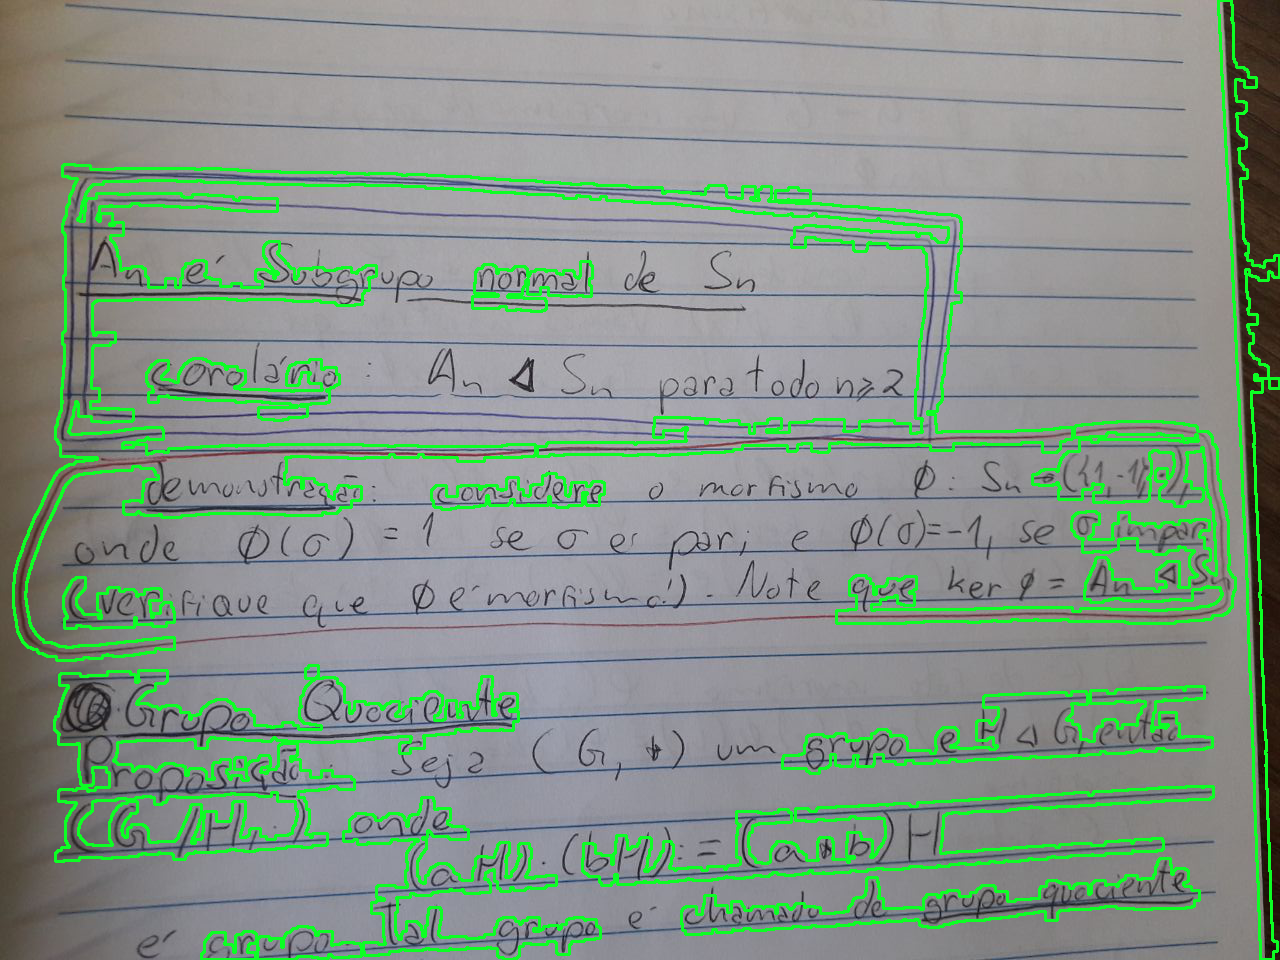 An é Subgrupo normal de Sn
corolário: An ⊲ Sn para todo n≥2
demonstração: considere o morfismo ϕ: Sn → ({1,-1},·),
onde ϕ(σ) = 1 se σ é par; e ϕ(σ)=-1, se σ ímpar
(verifique que ϕ é morfismo!). Note que ker ϕ = An ⊲ Sn
Grupo Quociente
Proposição: Seja (G, *) um grupo e H ⊲ G, então
(G/H, ·) onde
(aH)·(bH) = (a*b)H
é grupo. Tal grupo é chamado de grupo quociente